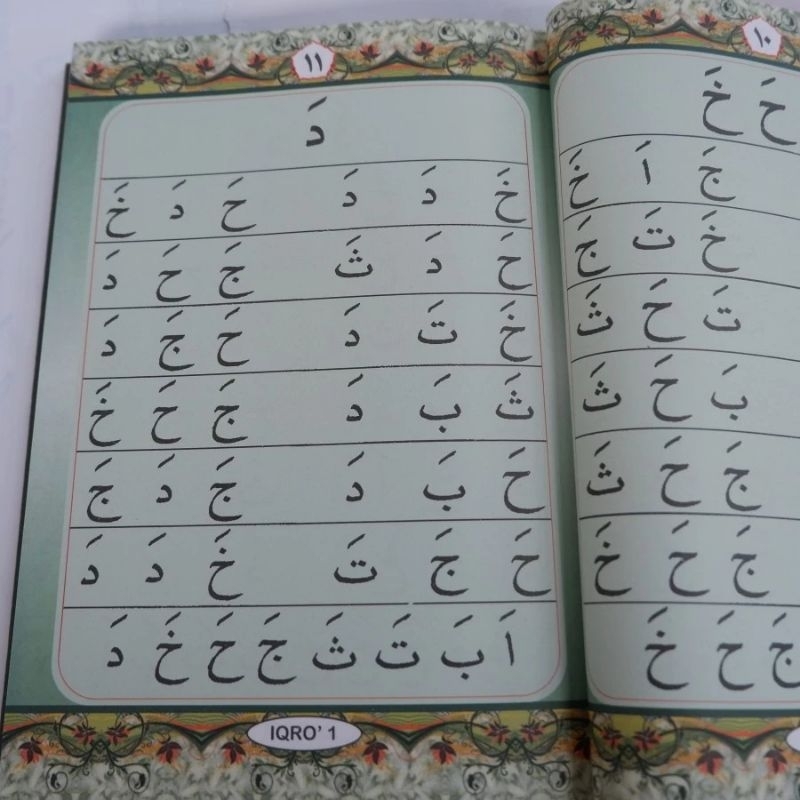 ١٠
حَ خَ
جَ اَ خَ
خَ تَ جَ
تَ حَ ثَ
بَ حَ ثَ
جَ حَ ثَ
جَ حَ خَ
جَ حَ خَ
١١
دَ
خَ دَ دَ حَ دَ خَ
حَ دَ ثَ جَ حَ دَ
خَ تَ دَ حَ جَ دَ
ثَ بَ دَ جَ حَ خَ
حَ بَ دَ جَ دَ جَ
حَ جَ تَ خَ دَ دَ
اَ بَ تَ ثَ جَ حَ خَ دَ
IQRO' 1